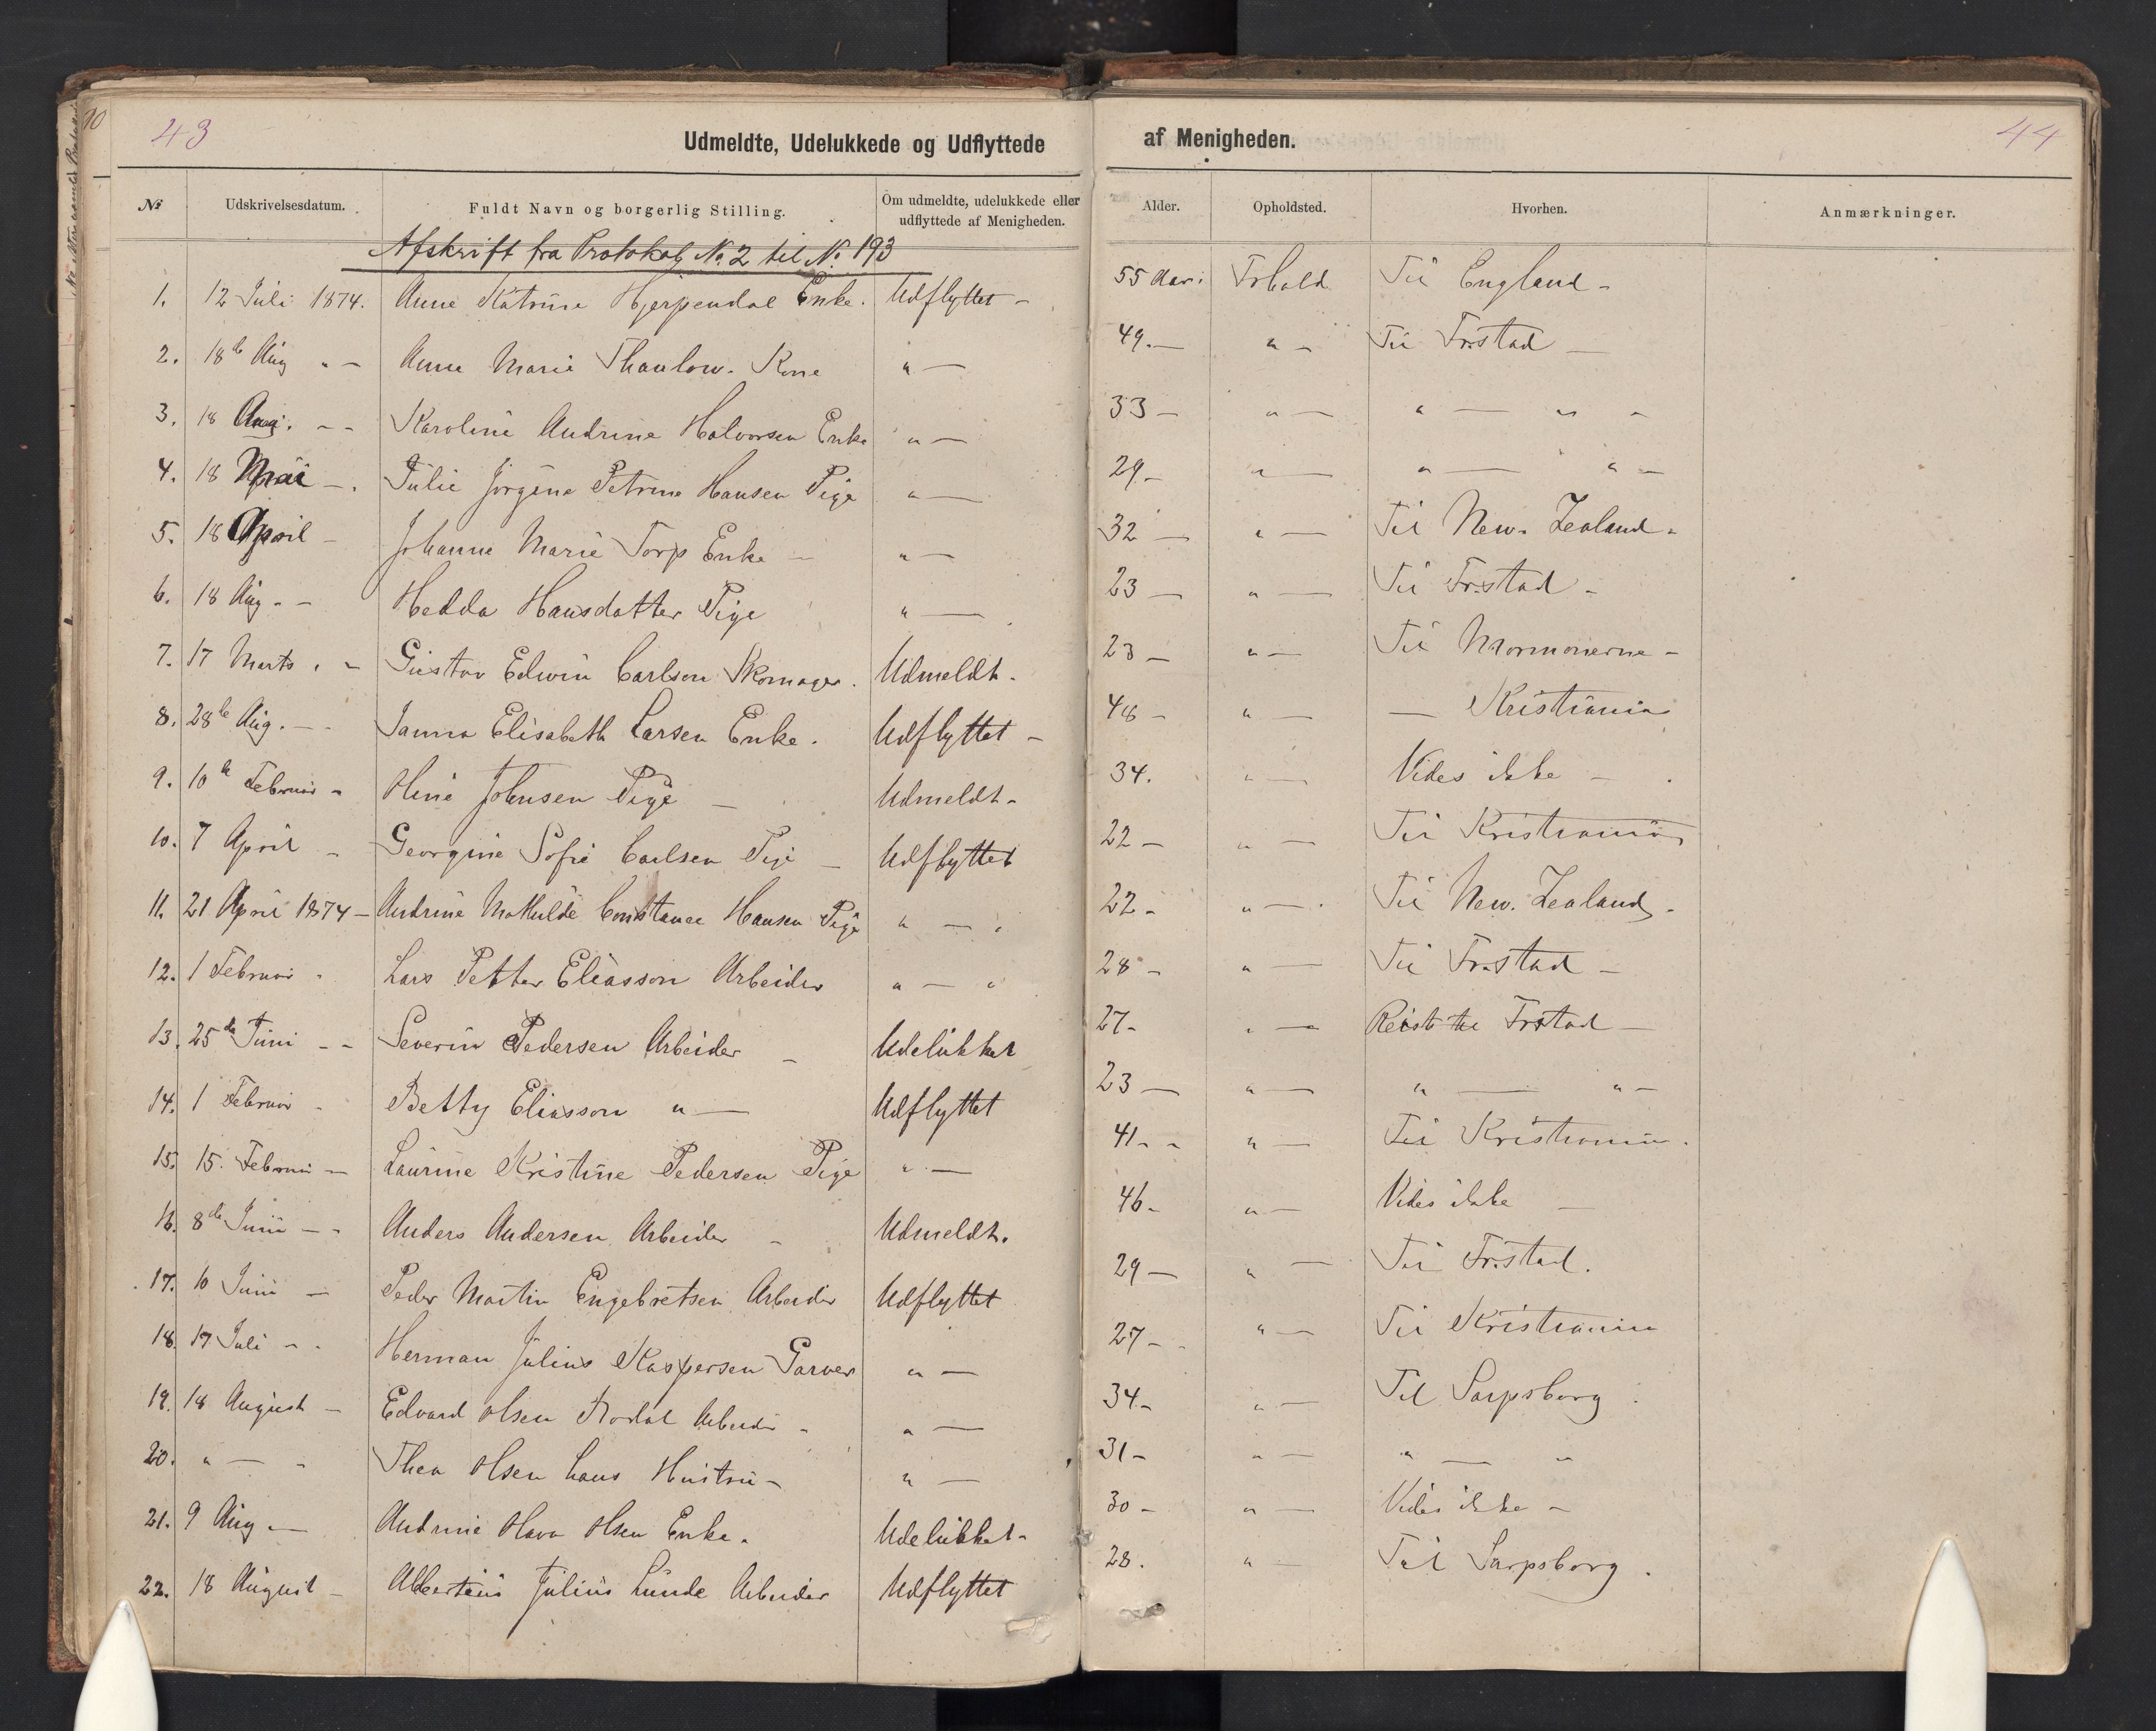 43
Udmeldte, Udelukkede og Udflyttede af Menigheden.
44
№ Udskrivelsesdatum. Fuldt Navn og borgerlig Stilling. Om udmeldte, udelukkede eller udflyttede af Menigheden. Alder. Opholdsted. Hvorhen. Anmærkninger.
Afskrift fra Protokol No. 2 til No. 193
1. 12 Juli 1874. Anne Katrine Hjerpendal Enke. Udflyttet - 55 Aar. Frhald Til England -
2. 18de Aug " - Anne Marie Thaulow. Kone " — 49. — " - Til Frstad —
3. 18 Aug. - - Karoline Andrine Halvorsen Enke " — 33 — " — " — " -
4. 18 Mai - . Julie Jörgine Petrine Hansen Pige " — 29. - " — " — " -
5. 18 April - Johanne Marie Torp Enke - " — 32 — " — Til New. Zealand -
6. 18 Aug - - Hedda Hansdatter Pige " — 23 — " — Til Fr.stad -
7. 17 Marts . - Gustav Edwin Carlson Skomager. Udmeldt. 23 — " — Til Mormonerne -
8. 28de Aug. - Janna Elisabeth Larsen Enke. Udflyttet - 48 - " — — Kristiania
9. 10de Februar - Oline Johnsen Pige — Udmeldt - 34. " — Vides ikke -
10. 7 April - Georgine Sofie Carlsen Pige — Udflyttet 22 - " — Til Kristiania
11. 21 April 1874 - Andrine Mathilde Constance Hansen Pige " — " 22 - " — Til New. Zealand -
12. 1 Februar - Lars Petter Eliasson Arbeider " — " 28 - " — Til Fr.stad -
13. 25de Juni - - Severin Pedersen Arbeider - Udelukket 27 - " — Reist til Frstad —
14. 1 Februar - Betty Eliasson " — Udflyttet 23 — " — " — " -
15. 15. Februar — Laurine Kristine Pedersen Pige " — 41 - - " — Til Kristiania.
16. 8de Juni - - Anders Andersen Arbeider - Udmeldt. 46 - " — Vides ikke —
17. 10 Juni — Peder Martin Engebretsen Arbeider Udflyttet 29 — " — Til Fr.stad.
18. 17 Juli - . Herman Julius Kaspersen Garver " — 27 - - " — Til Kristiania
19. 18 August - Edvard Olsen Arbeider - " — 34 - " — Til Sarpsborg.
20. " — - Thea Olsen hans Hustru - " — 31 - " — " — "
21. 9 Aug — Andrine Olava Olsen Enke. Udelukket - 30 - " — Vides ikke -
22. 18 August - Albertius Julius Lunde Arbeider Udflyttet 28. " — Til Sarpsborg.